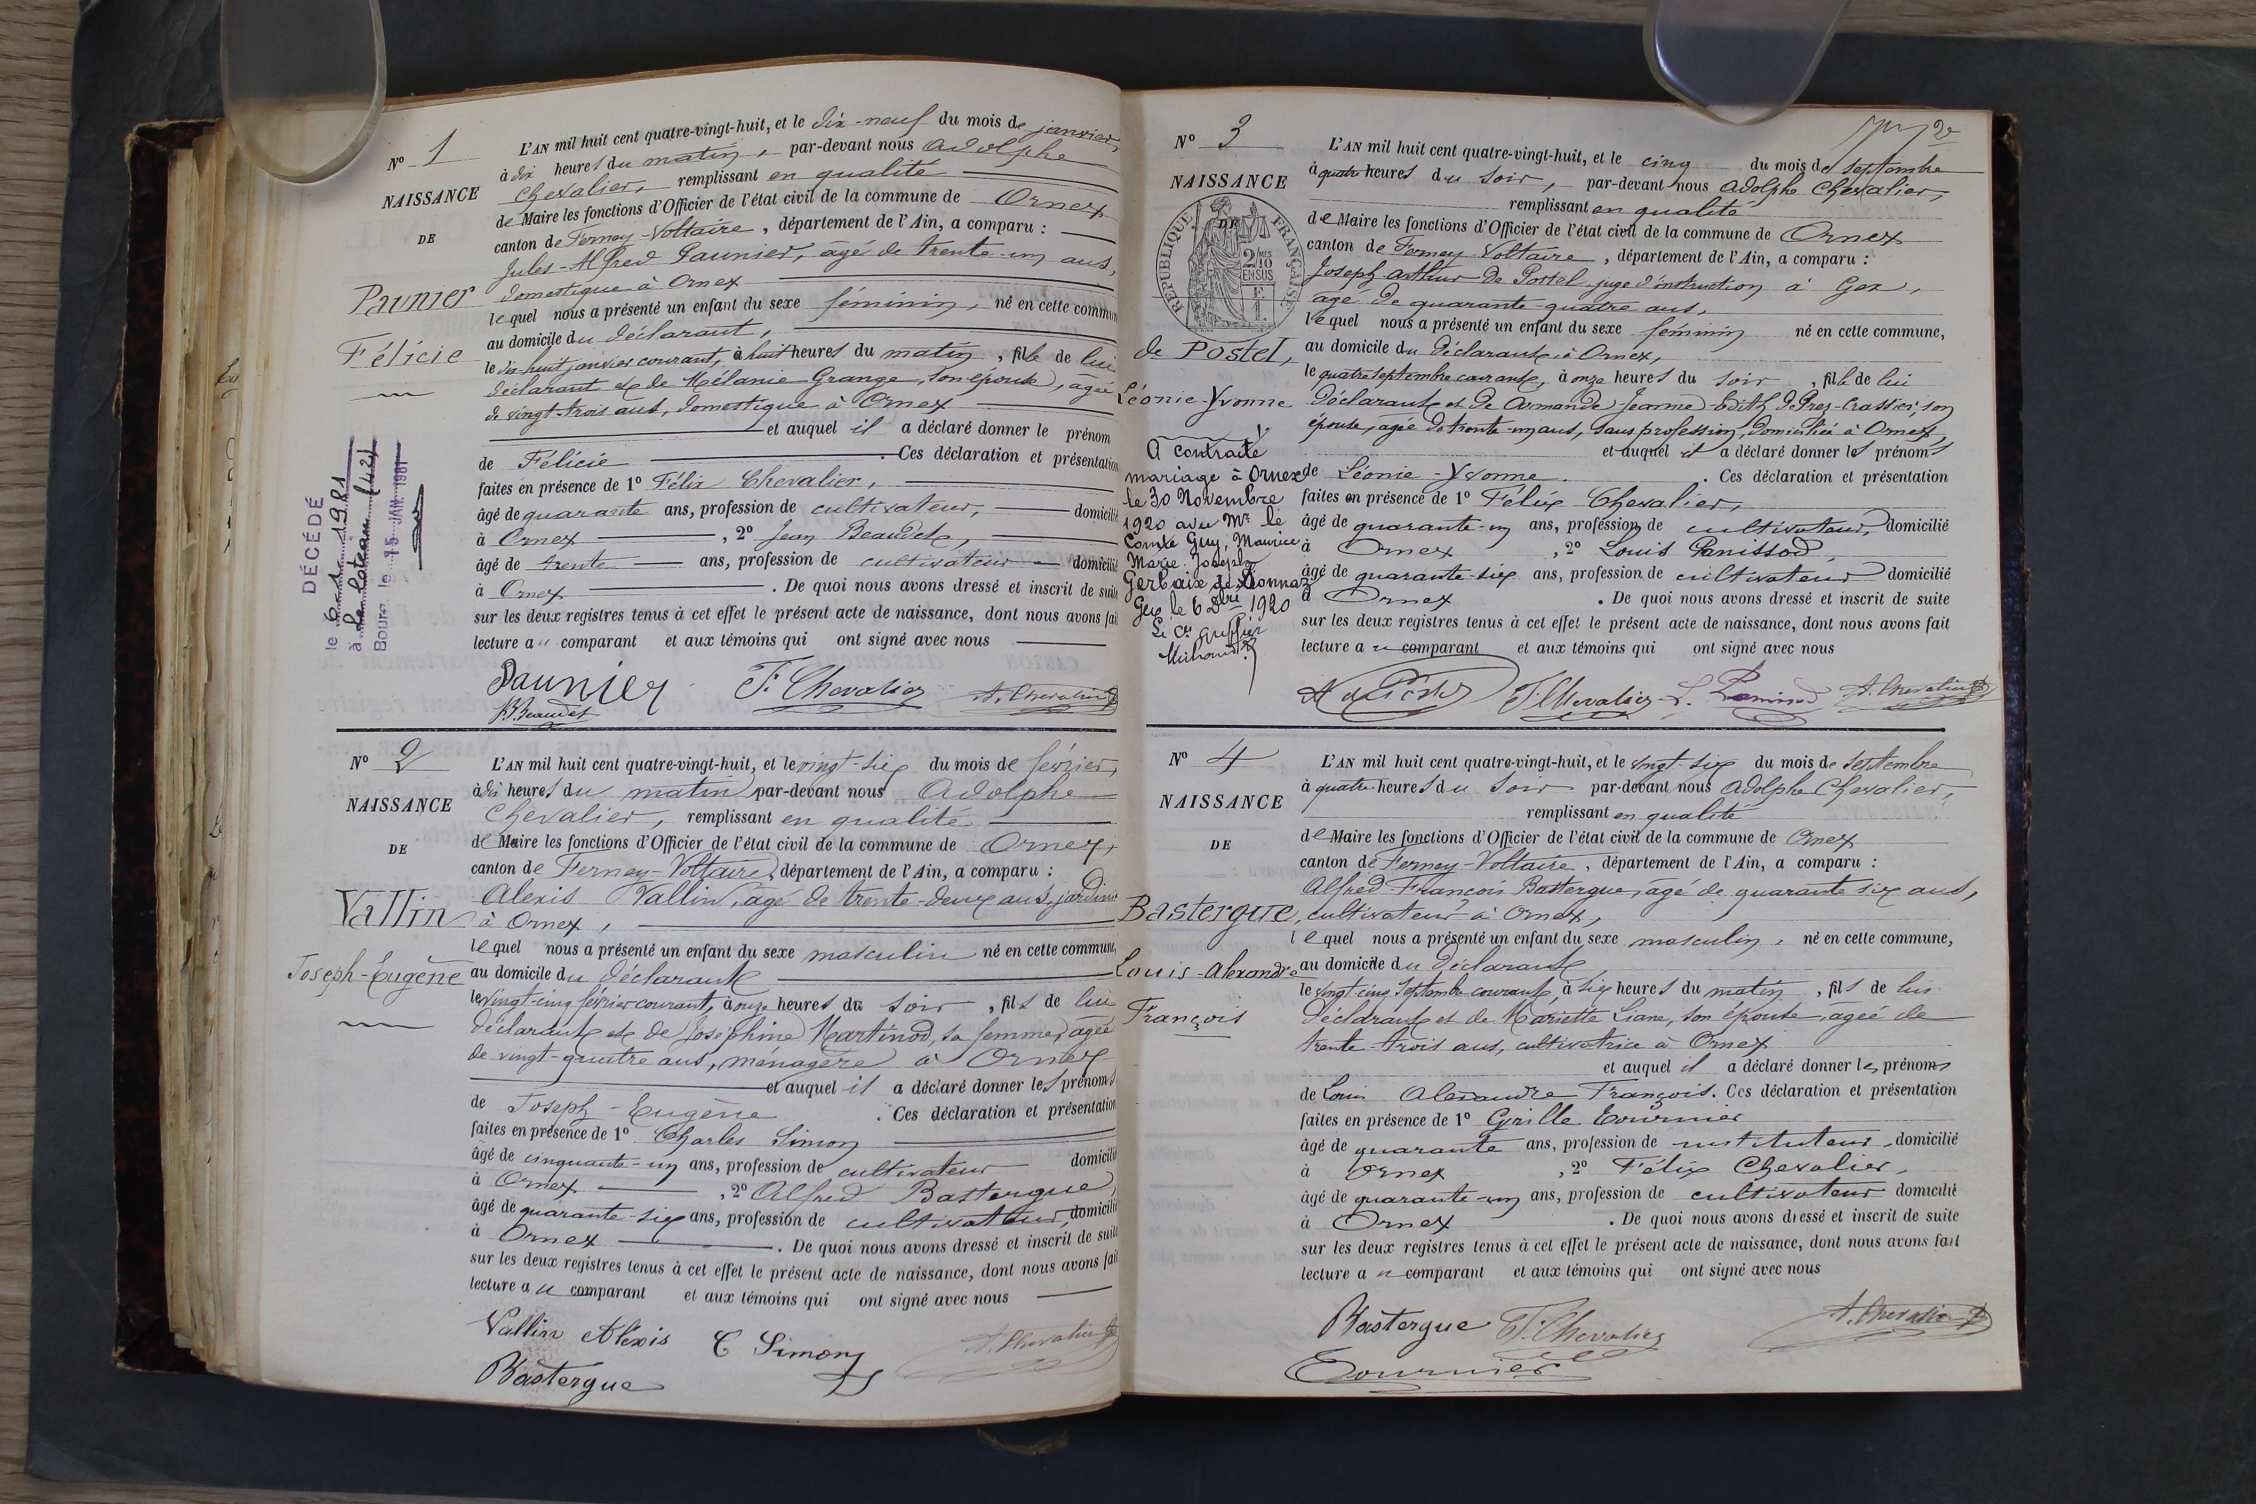 N° 1
NAISSANCE
DE
Paunier
Félicie
DÉCÉDÉ
le 6-1-1981
à
Bourg le 15 JAN. 1981
L'AN mil huit cent quatre-vingt-huit, et le dix-neuf du mois de janvier,
à dix heures du matin, par-devant nous Adolphe
Chevalier, remplissant en qualité
de Maire les fonctions d'Officier de l'état civil de la commune de Ornex
canton de Ferney-Voltaire, département de l'Ain, a comparu :
Jules-Alfred Paunier, âgé de trente-un ans,
domestique à Ornex
lequel nous a présenté un enfant du sexe féminin, né en cette commune
au domicile du déclarant,
le dix-huit janvier courant, à huit heures du matin, fille de lui
déclarant et de Mélanie Grange, son épouse, âgée
de vingt-trois ans, domestique à Ornex
et auquel il a déclaré donner le prénom
de Félicie. Ces déclaration et présentation
faites en présence de 1° Félix Chevalier,
âgé de quarante ans, profession de cultivateur, domicilié
à Ornex, 2° Jean Beaudet,
âgé de trente ans, profession de cultivateur domicilié
à Ornex. De quoi nous avons dressé et inscrit de suite
sur les deux registres tenus à cet effet le présent acte de naissance, dont nous avons fait
lecture au comparant et aux témoins qui ont signé avec nous
Paunier F. Chevalier A. Chevalier
Beaudet
N° 2
NAISSANCE
DE
Vallin
Joseph-Eugène
L'AN mil huit cent quatre-vingt-huit, et le vingt-six du mois de février,
à dix heures du matin par-devant nous Adolphe
Chevalier, remplissant en qualité
de Maire les fonctions d'Officier de l'état civil de la commune de Ornex,
canton de Ferney-Voltaire, département de l'Ain, a comparu :
Alexis Vallin, âgé de trente-deux ans, jardinier
à Ornex,
lequel nous a présenté un enfant du sexe masculin né en cette commune,
au domicile du déclarant
le vingt-cinq février courant, à onze heures du soir, fils de lui
déclarant et de Joséphine Martinod, sa femme, âgée
de vingt-quatre ans, ménagère à Ornex
et auquel il a déclaré donner les prénoms
de Joseph-Eugène. Ces déclaration et présentation
faites en présence de 1° Charles Simon
âgé de cinquante-un ans, profession de cultivateur domicilié
à Ornex, 2° Alfred Bastergue,
âgé de quarante-six ans, profession de cultivateur, domicilié
à Ornex. De quoi nous avons dressé et inscrit de suite
sur les deux registres tenus à cet effet le présent acte de naissance, dont nous avons fait
lecture au comparant et aux témoins qui ont signé avec nous
Vallin Alexis C Simon A. Chevalier
Bastergue
N° 3
NAISSANCE
DE
RÉPUBLIQUE FRANÇAISE
2/10
EN SUS
de Postel,
Léonie-Yvonne
A contracté
mariage à Ornex
le 30 Novembre
1920 avec Mr le
Comte Guy, Maurice,
Marie Joseph
Gerbaix de Sonnaz
Gex le 6 Xbre 1920
L'AN mil huit cent quatre-vingt-huit, et le cinq du mois de septembre
à quatre heures du soir, par-devant nous Adolphe Chevalier,
remplissant en qualité
de Maire les fonctions d'Officier de l'état civil de la commune de Ornex
canton de Ferney Voltaire, département de l'Ain, a comparu :
Joseph Arthur de Postel juge d'instruction à Gex,
âgé de quarante quatre ans,
lequel nous a présenté un enfant du sexe féminin né en cette commune,
au domicile du déclarant, à Ornex,
le quatre septembre courant, à onze heures du soir, fille de lui
déclarant et de Armande-Jeanne-Edith de Prez-Crassier, son
épouse, âgée de trente-un ans, sans profession, domiciliée à Ornex,
et auquel il a déclaré donner les prénoms
de Léonie-Yvonne. Ces déclaration et présentation
faites en présence de 1° Félix Chevalier,
âgé de quarante-un ans, profession de cultivateur, domicilié
à Ornex, 2° Louis Panissod,
âgé de quarante-six ans, profession de cultivateur domicilié
à Ornex. De quoi nous avons dressé et inscrit de suite
sur les deux registres tenus à cet effet le présent acte de naissance, dont nous avons fait
lecture au comparant et aux témoins qui ont signé avec nous
F. Chevalier A. Chevalier
N° 4
NAISSANCE
DE
Bastergue,
Louis-Alexandre
François
L'AN mil huit cent quatre-vingt-huit, et le vingt-six du mois de septembre
à quatre heures du soir par-devant nous Adolphe Chevalier,
remplissant en qualité
de Maire les fonctions d'Officier de l'état civil de la commune de Ornex
canton de Ferney-Voltaire, département de l'Ain, a comparu :
Alfred François Bastergue, âgé de quarante six ans,
cultivateur à Ornex,
lequel nous a présenté un enfant du sexe masculin, né en cette commune,
au domicile du déclarant
le vingt-cinq septembre courant, à six heures du matin, fils de lui
déclarant et de Mariette Liane, son épouse, âgée de
trente-trois ans, cultivatrice à Ornex
et auquel il a déclaré donner les prénoms
de Louis Alexandre François. Ces déclaration et présentation
faites en présence de 1° Cyrille Tournier
âgé de quarante ans, profession de instituteur, domicilié
à Ornex, 2° Félix Chevalier,
âgé de quarante-un ans, profession de cultivateur domicilié
à Ornex. De quoi nous avons dressé et inscrit de suite
sur les deux registres tenus à cet effet le présent acte de naissance, dont nous avons fait
lecture au comparant et aux témoins qui ont signé avec nous
Bastergue F. Chevalier A. Chevalier
Tournier